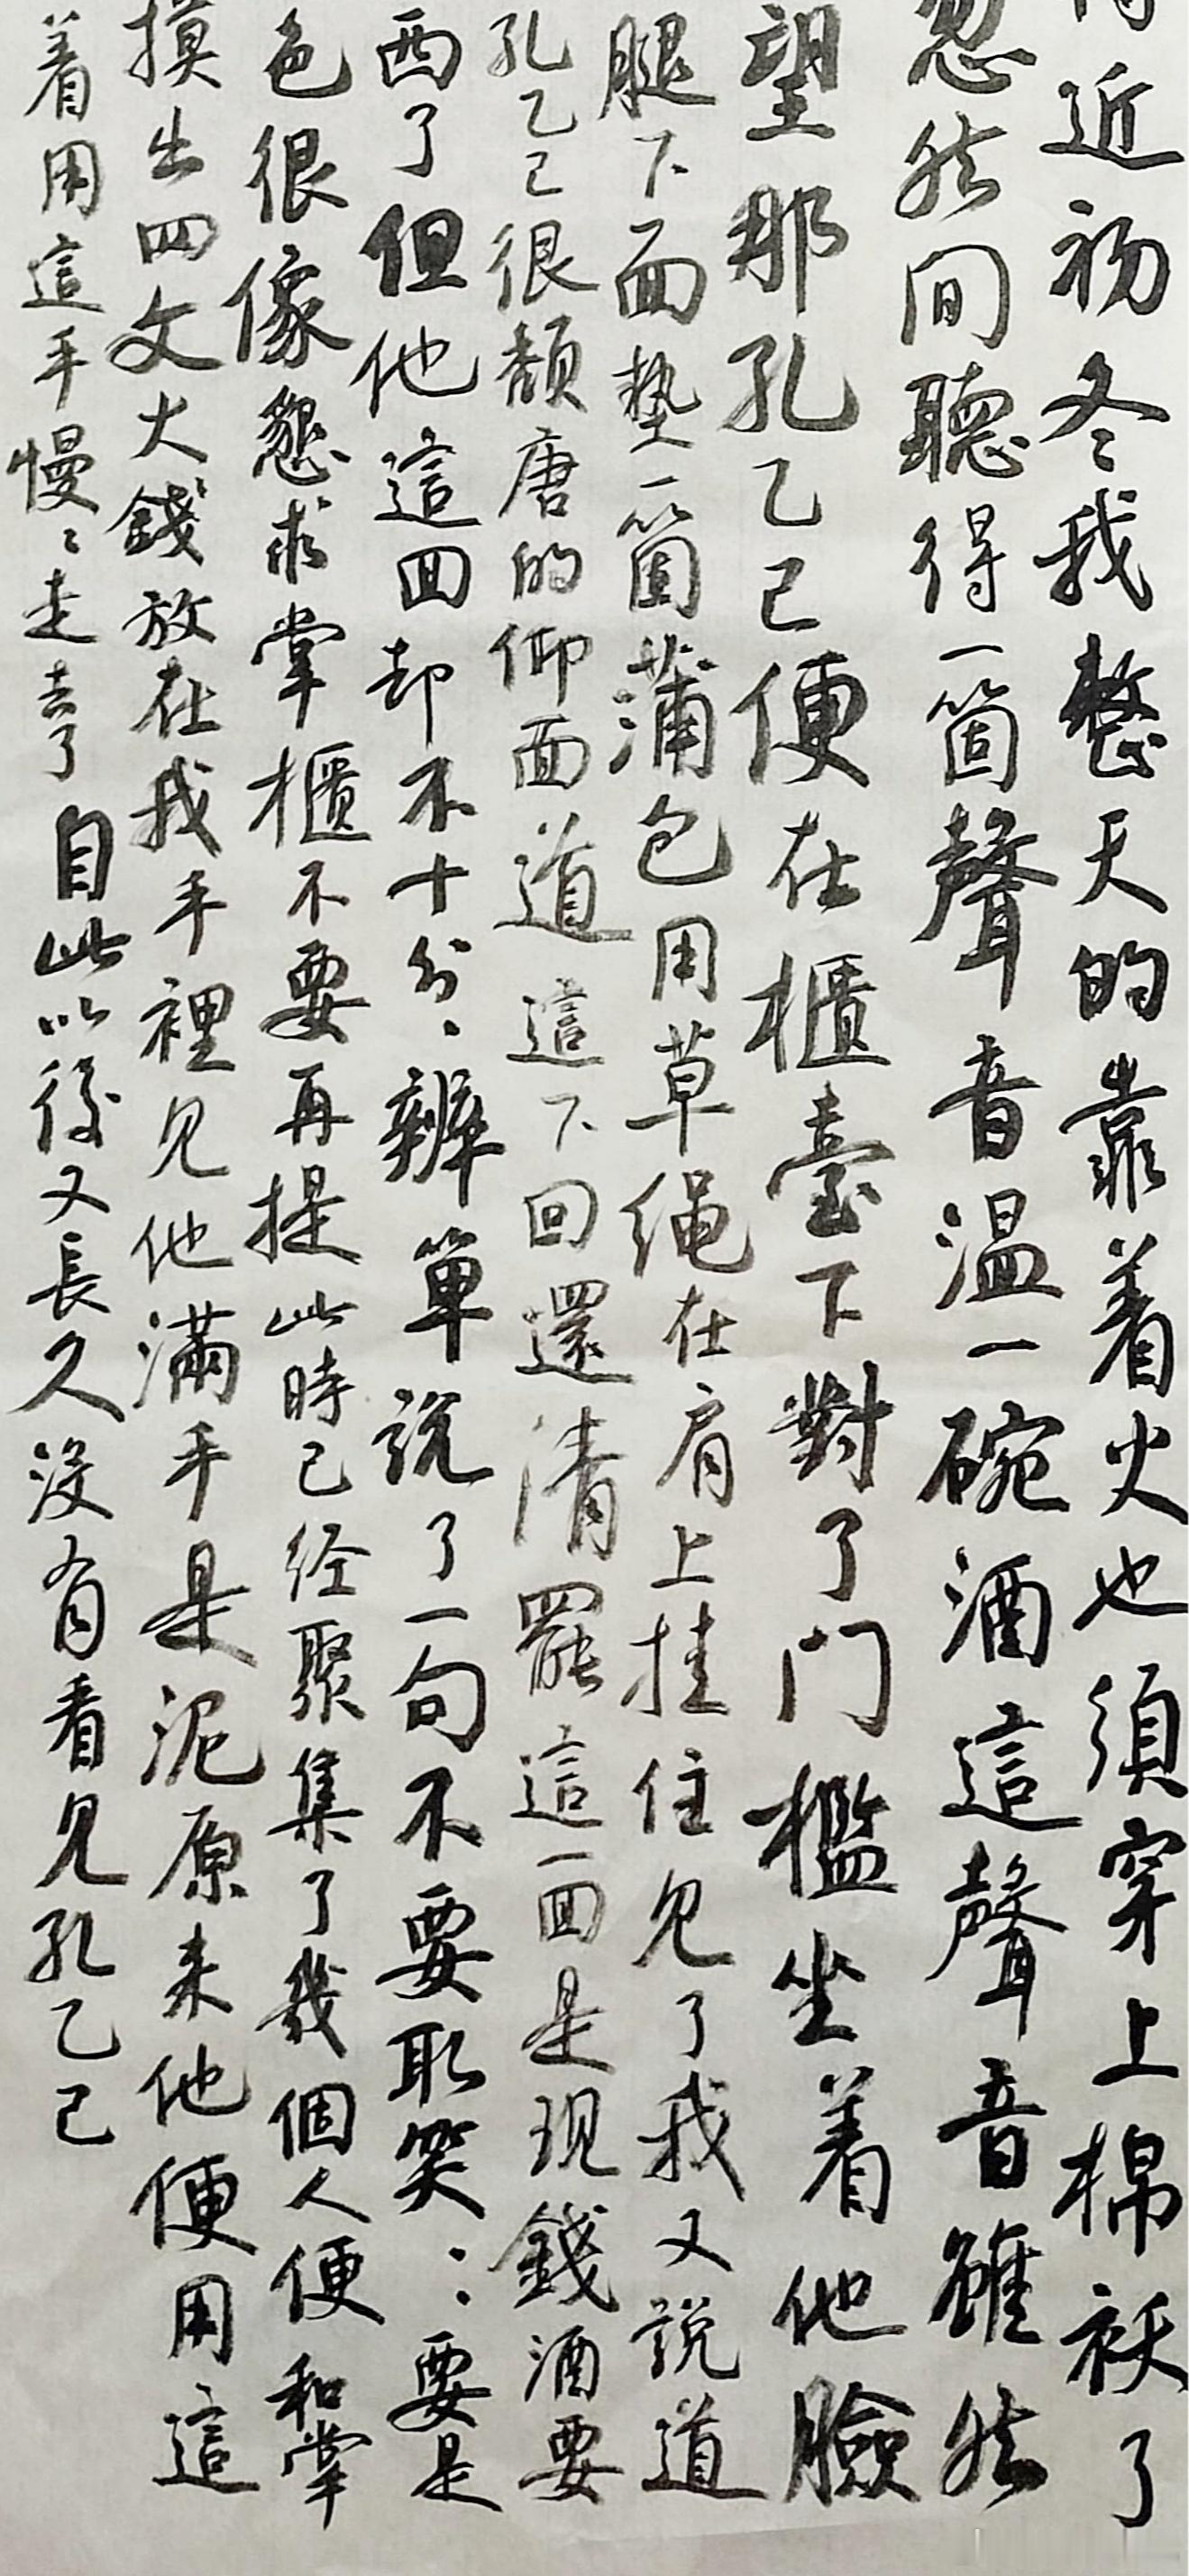 近初冬我整天的靠着火也須穿上棉袄了
忽然间聽得一箇聲音温一碗酒這聲音雖然
望那孔乙己便在櫃臺下對了门檻坐着他臉
腿下面墊一箇蒲包用草绳在肩上挂住见了我又説道
孔乙己很頹唐的仰面道這下回還清罷這一回是现錢酒要
西了但他這回却不十分、辨單説了一句不要取笑:要是
色很像懇求掌櫃不要再提此時已经聚集了幾個人便和掌
摸出四文大錢放在我手裡见他滿手是泥原来他便用這
着用這手慢〻走去了自此以後又長久没有看见孔乙己